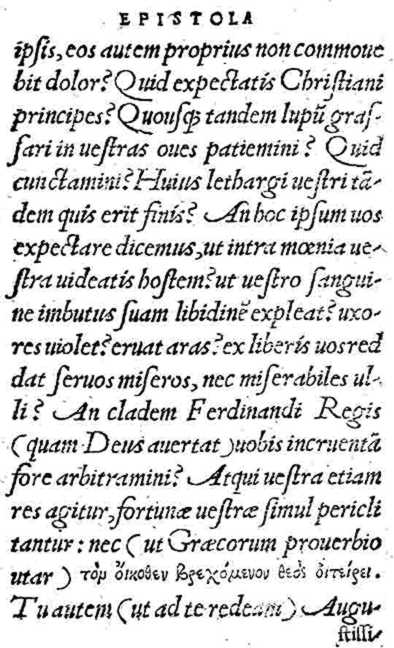 EPISTOLA
ipsis, eos autem proprius non commoue
bit dolor? Quid expectatis Christiani
principes? Quousq; tandem lupũ graſ-
ſari in ueſtras oues patiemini? Quid
cunctamini? Huius lethargi ueſtri tã-
dem quis erit finis? An hoc ipſum uos
expectare dicemus, ut intra mœnia ue-
ſtra uideatis hoſtem? ut ueſtro ſangui-
ne imbutus ſuam libidinẽ expleat? uxo-
res uiolet? eruat aras? ex liberis uos red
dat ſeruos miſeros, nec miſerabiles ul-
li? An cladem Ferdinandi Regis
(quam Deus auertat) uobis incruentã
fore arbitramini? Atqui ueſtra etiam
res agitur, fortunæ ueſtræ ſimul pericli
tantur: nec (ut Græcorum prouerbio
utar) τὸν οἴκοθεν βρεχόμενον θεὸς οἰτείρει.
Tu autem (ut ad te redeam) Augu-
ſtiſſi